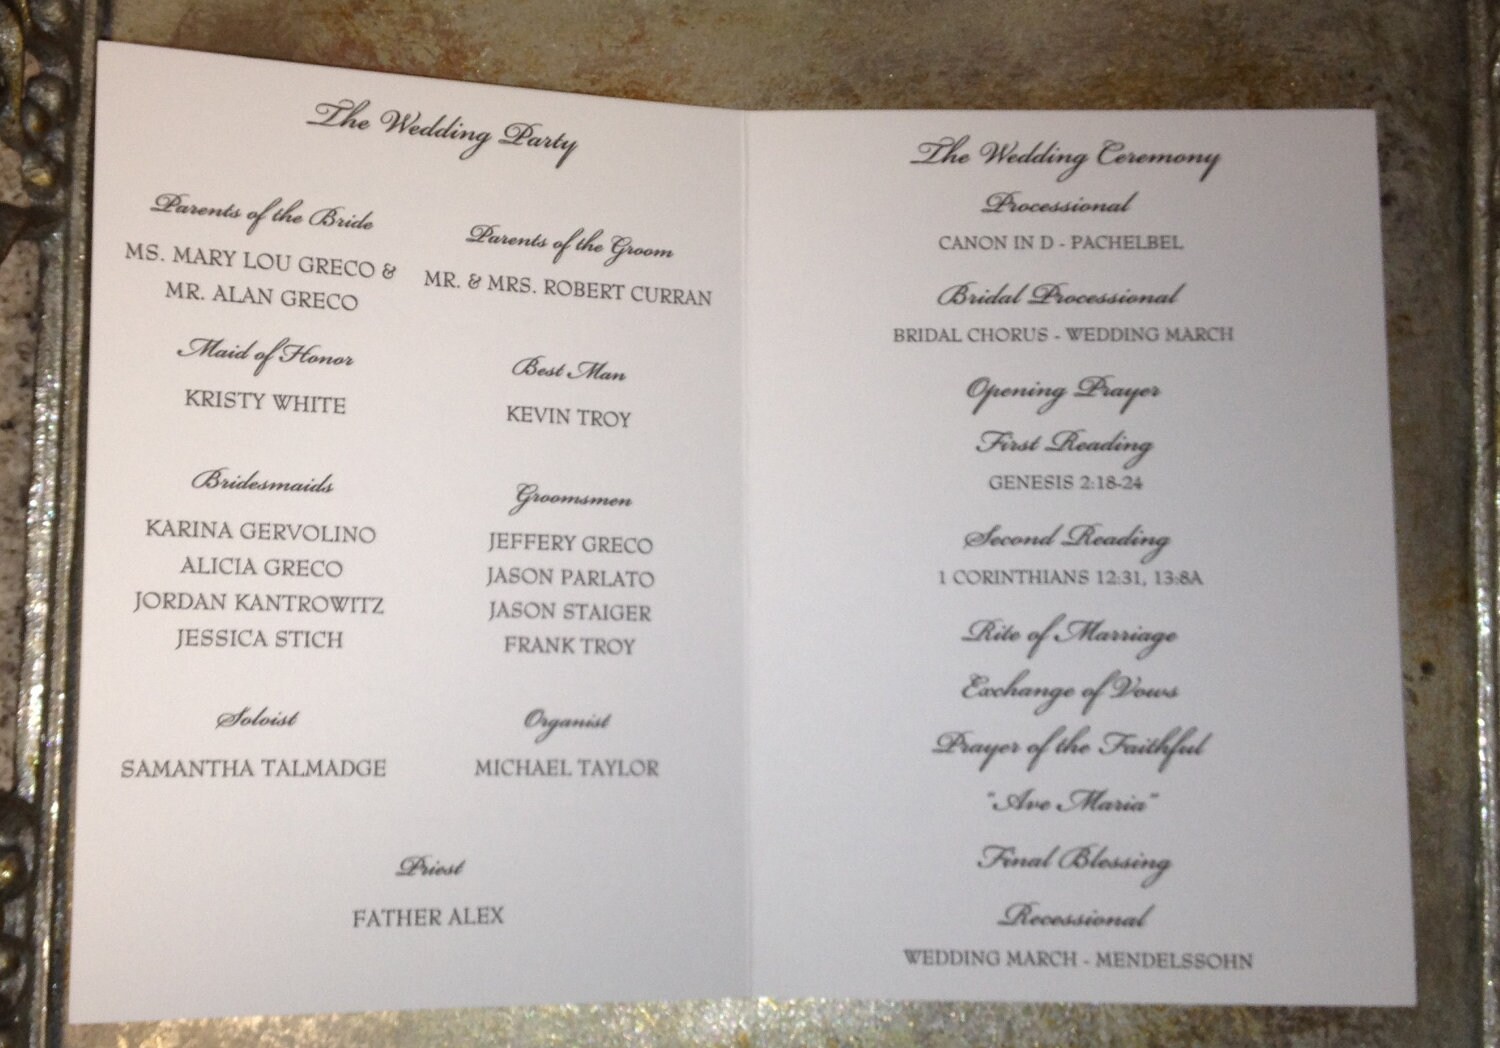 The Wedding Party
Parents of the Bride
MS. MARY LOU GRECO &
MR. ALAN GRECO
Parents of the Groom
MR. & MRS. ROBERT CURRAN
Maid of Honor
KRISTY WHITE
Best Man
KEVIN TROY
Bridesmaids
KARINA GERVOLINO
ALICIA GRECO
JORDAN KANTROWITZ
JESSICA STICH
Groomsmen
JEFFERY GRECO
JASON PARLATO
JASON STAIGER
FRANK TROY
Soloist
SAMANTHA TALMADGE
Organist
MICHAEL TAYLOR
Priest
FATHER ALEX
The Wedding Ceremony
Processional
CANON IN D - PACHELBEL
Bridal Processional
BRIDAL CHORUS - WEDDING MARCH
Opening Prayer
First Reading
GENESIS 2:18-24
Second Reading
1 CORINTHIANS 12:31, 13:8A
Rite of Marriage
Exchange of Vows
Prayer of the Faithful
"Ave Maria"
Final Blessing
Recessional
WEDDING MARCH - MENDELSSOHN